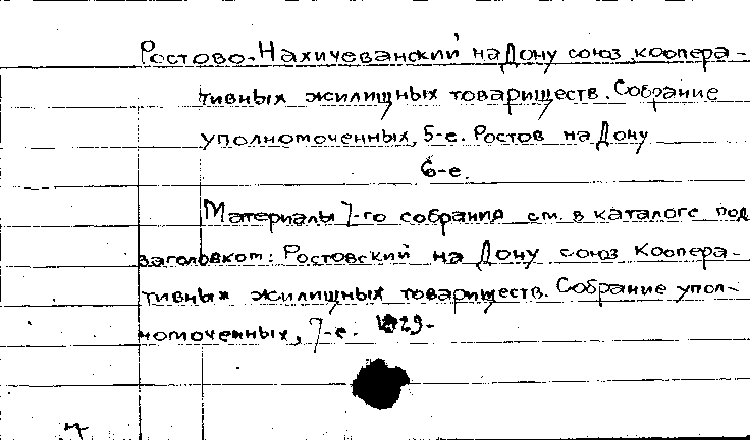 Ростово-Нахичеванский на Дону союз коопера-
тивных жилищных товариществ. Собрание
уполномоченных, 5-е. Ростов на Дону
6-е.
Материалы 7-го собрания см. в каталоге под
заголовком: Ростовский на Дону союз коопера-
тивных жилищных товариществ. Собрание упол-
номоченных, 7-е. 1929-